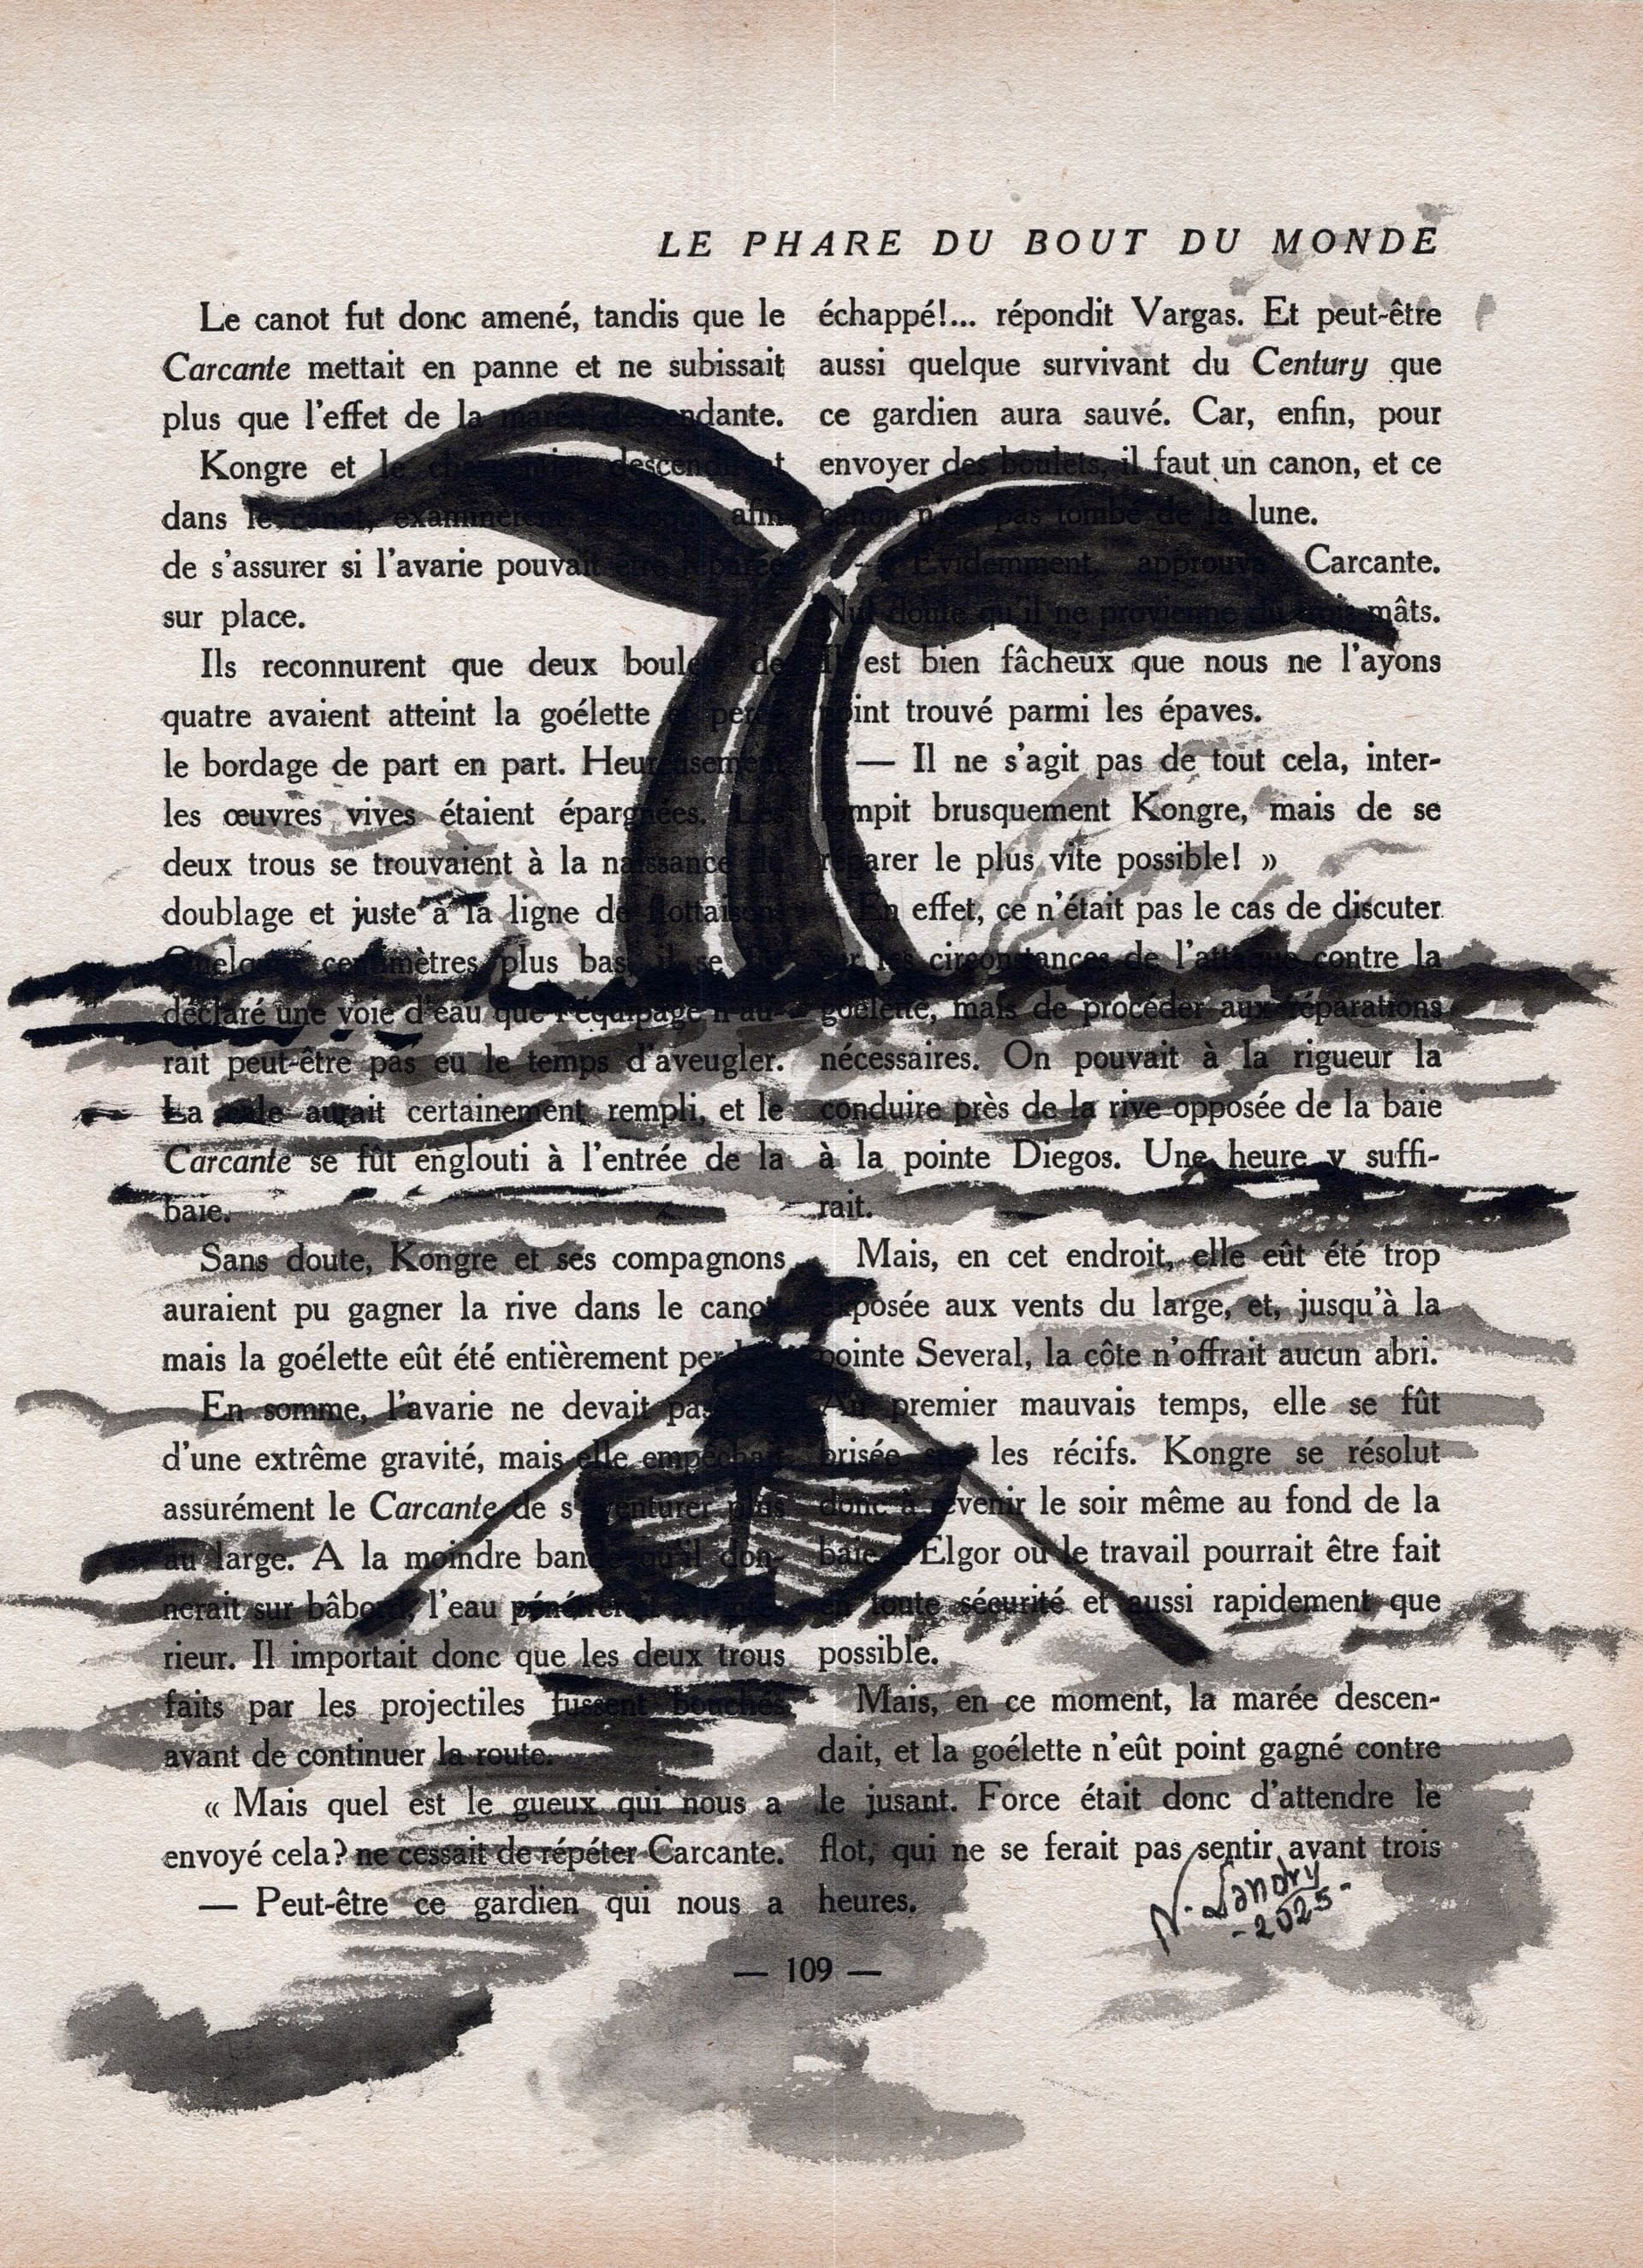 LE PHARE DU BOUT DU MONDE
Le canot fut donc amené, tandis que le
Carcante mettait en panne et ne subissait
plus que l'effet de la marée descendante.
Kongre et le charpentier descendirent
dans le canot, examinèrent afin
de s'assurer si l'avarie pouvait être réparée
sur place.
Ils reconnurent que deux boulets de
quatre avaient atteint la goélette et percé
le bordage de part en part. Heureusement
les œuvres vives étaient épargnées. Les
deux trous se trouvaient à la naissance du
doublage et juste à la ligne de flottaison.
Quelques centimètres plus bas, il se fût
déclaré une voie d'eau que l'équipage n'au-
rait peut-être pas eu le temps d'aveugler.
La cale aurait certainement rempli, et le
Carcante se fût englouti à l'entrée de la
baie.
Sans doute, Kongre et ses compagnons
auraient pu gagner la rive dans le canot
mais la goélette eût été entièrement
En somme, l'avarie ne devait pas
d'une extrême gravité, mais elle empêchait
assurément le Carcante de s'aventurer plus
au large. A la moindre bande qu'il don-
nerait sur bâbord, l'eau
rieur. Il importait donc que les deux trous
faits par les projectiles fussent bouchés
avant de continuer la route.
« Mais quel est le gueux qui nous a
envoyé cela? ne cessait de répéter Carcante.
— Peut-être ce gardien qui nous a
échappé!... répondit Vargas. Et peut-être
aussi quelque survivant du Century que
ce gardien aura sauvé. Car, enfin, pour
envoyer des boulets, il faut un canon, et ce
canon n'est pas tombé de la lune.
— Evidemment, approuva Carcante.
Nul doute qu'il ne provienne du trois-mâts.
Il est bien fâcheux que nous ne l'ayons
point trouvé parmi les épaves.
— Il ne s'agit pas de tout cela, inter-
rompit brusquement Kongre, mais de se
réparer le plus vite possible! »
En effet, ce n'était pas le cas de discuter
sur les circonstances de l'attaque contre la
goélette, mais de procéder aux réparations
nécessaires. On pouvait à la rigueur la
conduire près de la rive opposée de la baie
à la pointe Diegos. Une heure y suffi-
rait.
Mais, en cet endroit, elle eût été trop
exposée aux vents du large, et, jusqu'à la
pointe Several, la côte n'offrait aucun abri.
Au premier mauvais temps, elle se fût
brisée sur les récifs. Kongre se résolut
donc à revenir le soir même au fond de la
baie d'Elgor où le travail pourrait être fait
en toute sécurité et aussi rapidement que
possible.
Mais, en ce moment, la marée descen-
dait, et la goélette n'eût point gagné contre
le jusant. Force était donc d'attendre le
flot, qui ne se ferait pas sentir avant trois
heures.
N. Landry
-2025-
— 109 —